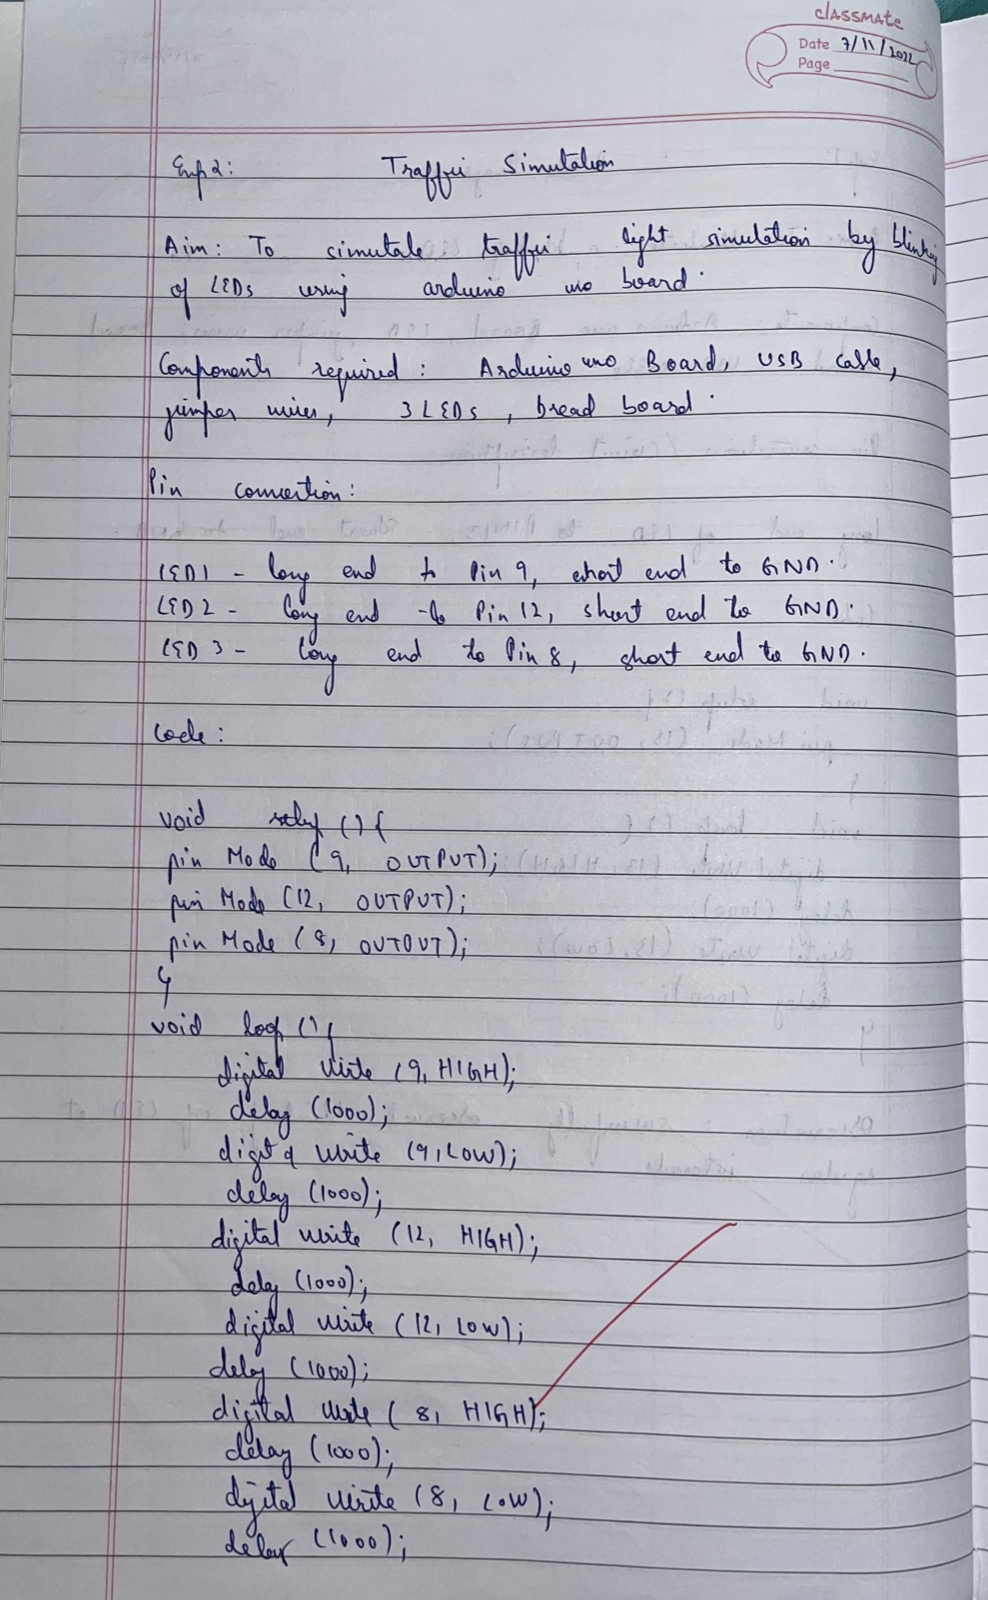 classmate
Date 7/11/2022
Page
Exp 2: Traffic Simulation
Aim: To simulate traffic light simulation by blinking
of LEDs using arduino uno board.
Components required: Arduino uno Board, USB cable,
jumper wires, 3 LEDs, bread board.
Pin connection:
LED1 - long end to Pin 9, short end to GND.
LED2 - long end to Pin 12, short end to GND.
LED 3 - long end to Pin 8, short end to GND.
Code:
void setup () {
pin Mode (9, OUTPUT);
pin Mode (12, OUTPUT);
pin Mode (8, OUTOUT);
}
void loop () {
digital write (9, HIGH);
delay (1000);
digital write (9, LOW);
delay (1000);
digital write (12, HIGH);
delay (1000);
digital write (12, LOW);
delay (1000);
digital write (8, HIGH);
delay (1000);
digital write (8, LOW);
delay (1000);